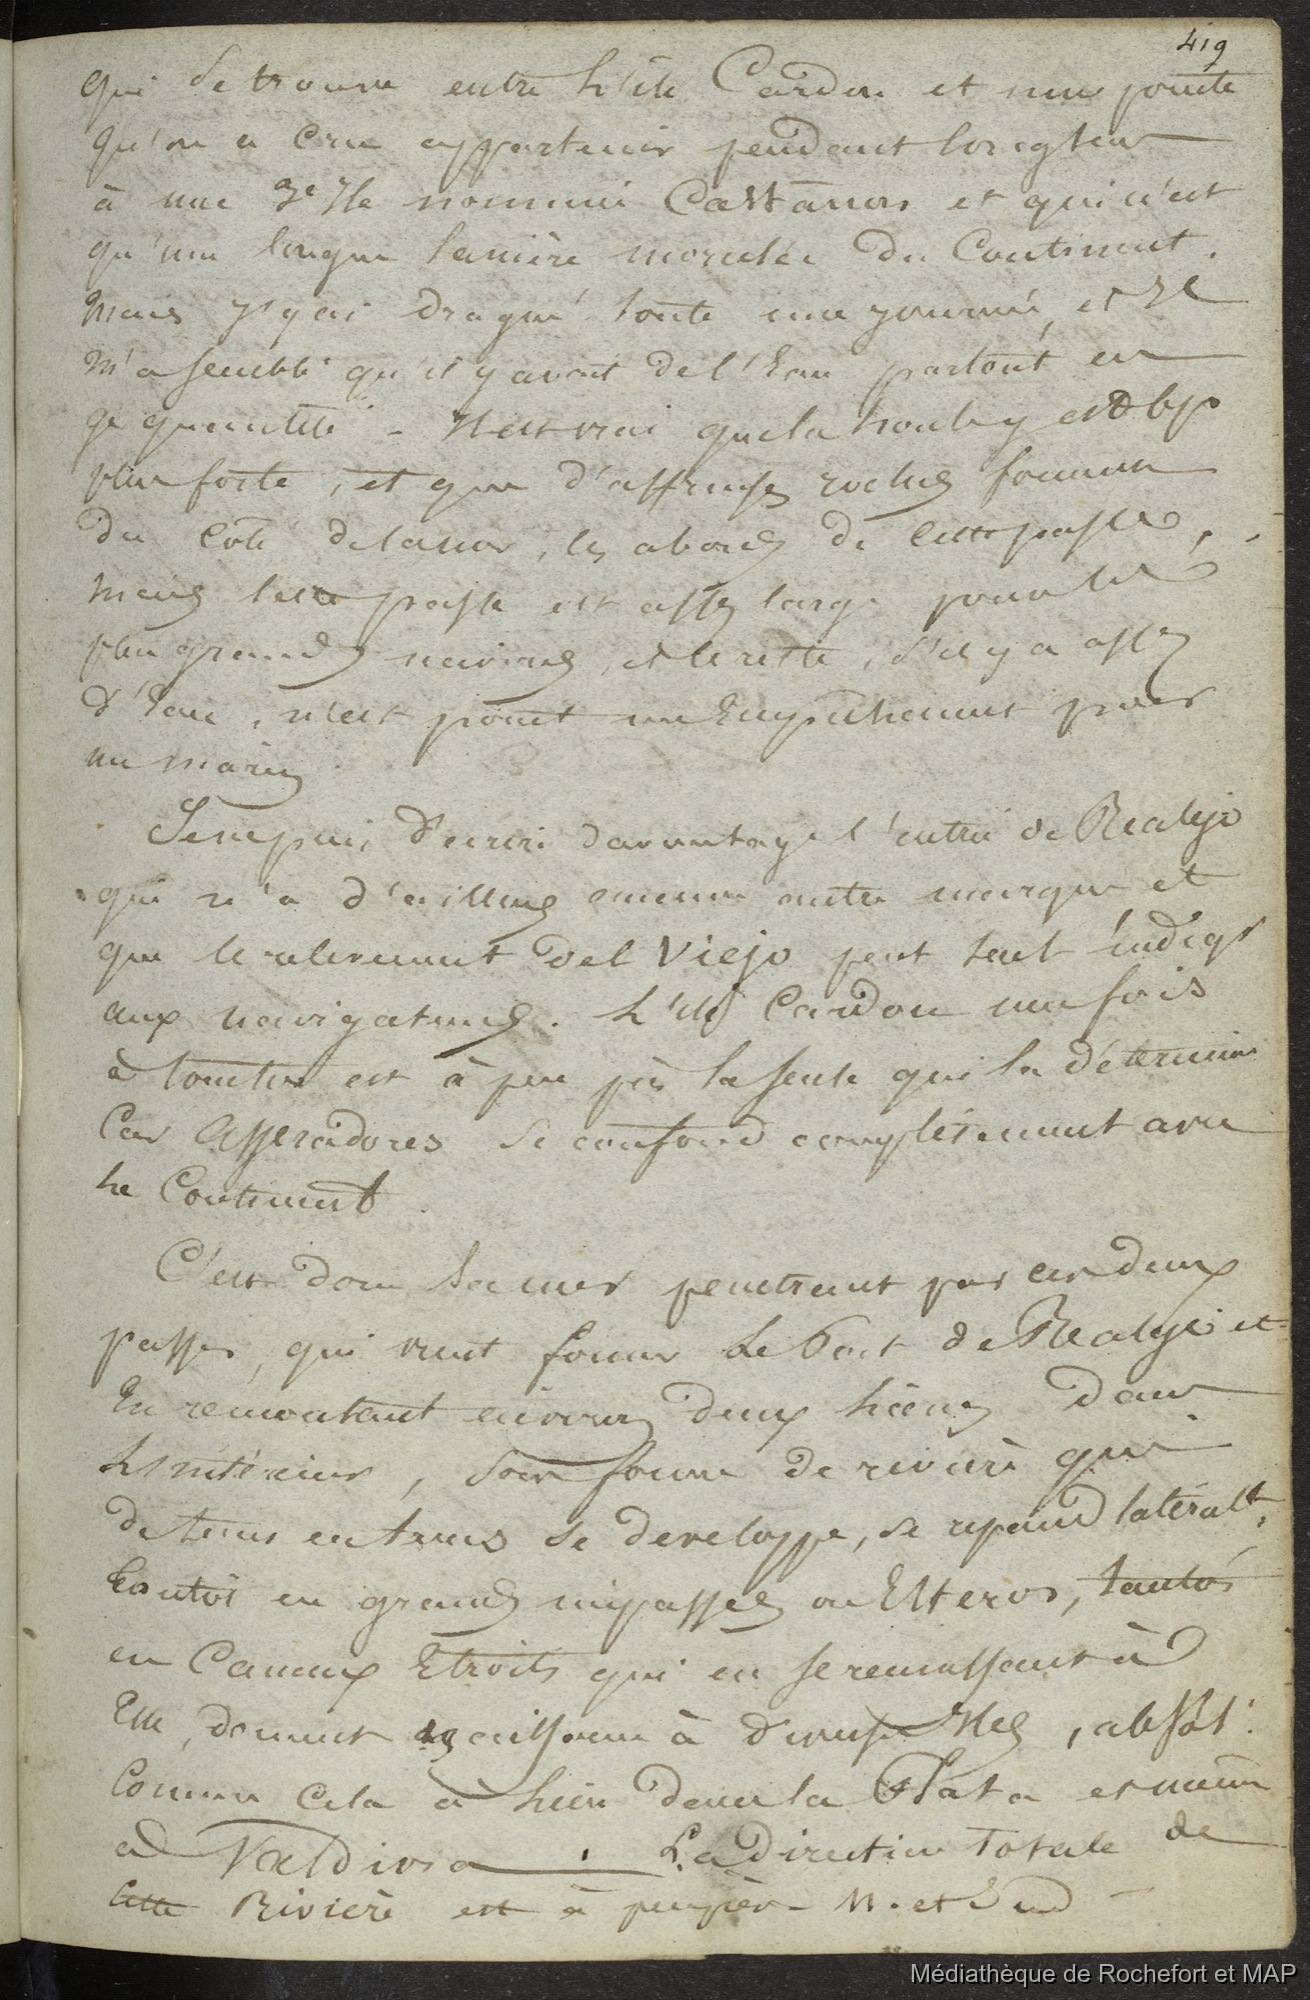 419
qui se trouve entre L'ile Cardon et une pointe
qu'on a cru appartenir pendant longtems
à une 3e Ile nommée Castanon et qui n'est
qu'une longue lanière morcelée du Continent.
Mais J'y ai dragué toute une journée, et Il
m'a semblé qu'il y avait de l'Eau partout en
ge quantité - Il est vrai que la houle y est bp
plus forte, et que d'affreuses roches forment
du coté de la mer, les abords de cette passe,
mais cette passe est assez large pour les
plus grands navires, et le reste, s'il y a assez
d'Eau, n'est point un Empêchement pour
un marin
Je ne puis d'ecrire davantage l'entrée de Realejo
qui n'a d'ailleurs aucune autre marque et
que le relevement del Viejo peut seul indiqr
aux navigateurs. L'ile Cardon une fois
à toucher est à peu près la seule qui la détermine
Car Asseradores se confond complètement avec
Le Continent.
C'est donc La mer penetrant par ces deux
passes, qui vient former Le Port de Realejo et
En remontant environ deux lieues dans
L'Intérieur, sous forme de rivière qui
de tems en tems se developpe, se repand latéralt,
tantôt en grands impasses ou Esteros, tantôt
en Canaux Etroits qui en se reunissant à
Elle, donnent naissance à diverses Iles, absolt
Comme Cela a lieu dans la Plata et même
a Valdivia. La direction Totale de
cette Rivière est à peu près N. et Sud -
Médiathèque de Rochefort et MAP